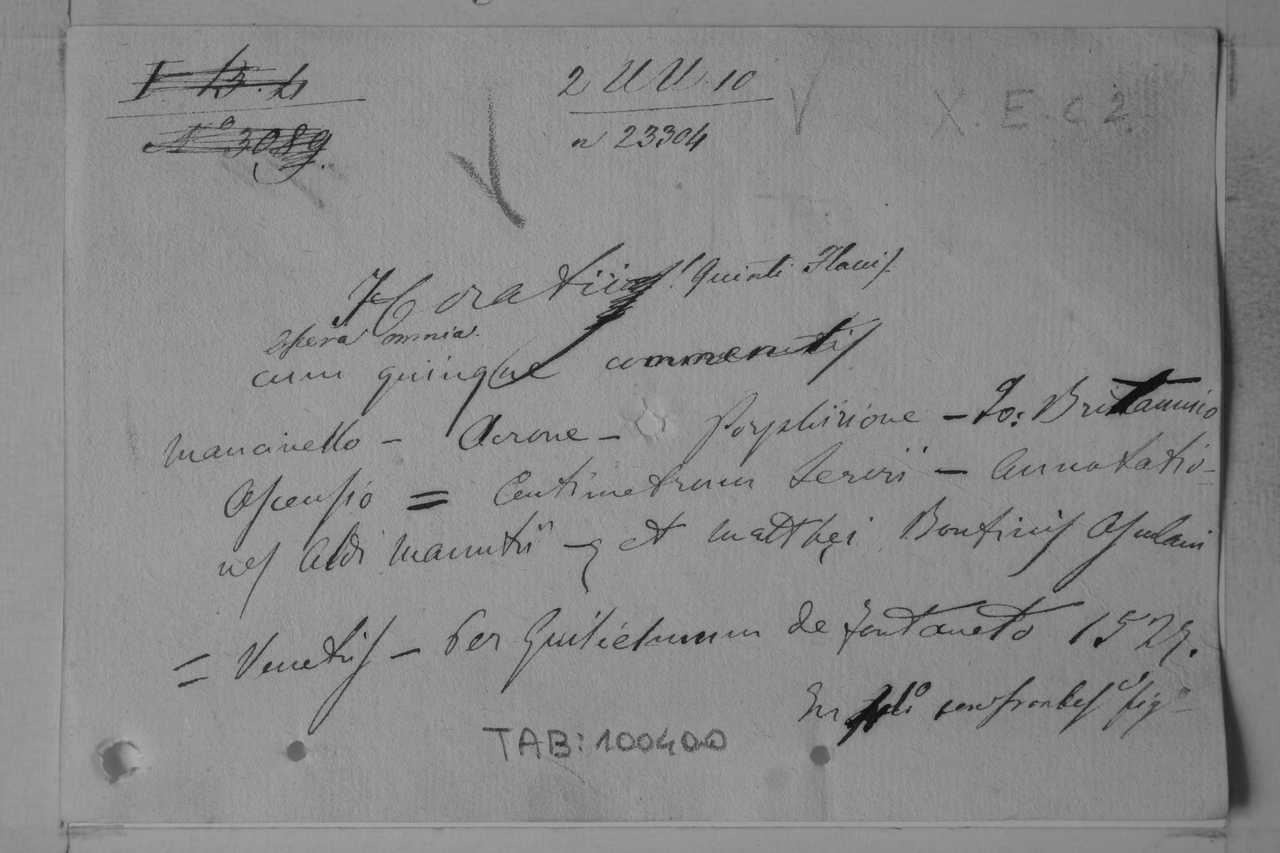 I 13. 4
2 U U. 10
X. E. C 2.
N° 3089.
n 23304
Horatii Quinti Flacci
opera omnia.
cum quinque commentis
Mancinello - Acrone - Porphirione - Io: Britannico
Ascensio = Centimetrum Servii - Annotatio-
nes Aldi Manutii - et Matthei Bonfinis Asulani
= Venetiis - Per Guilielmum de Fontaneto 1527.
In
TAB: 100400